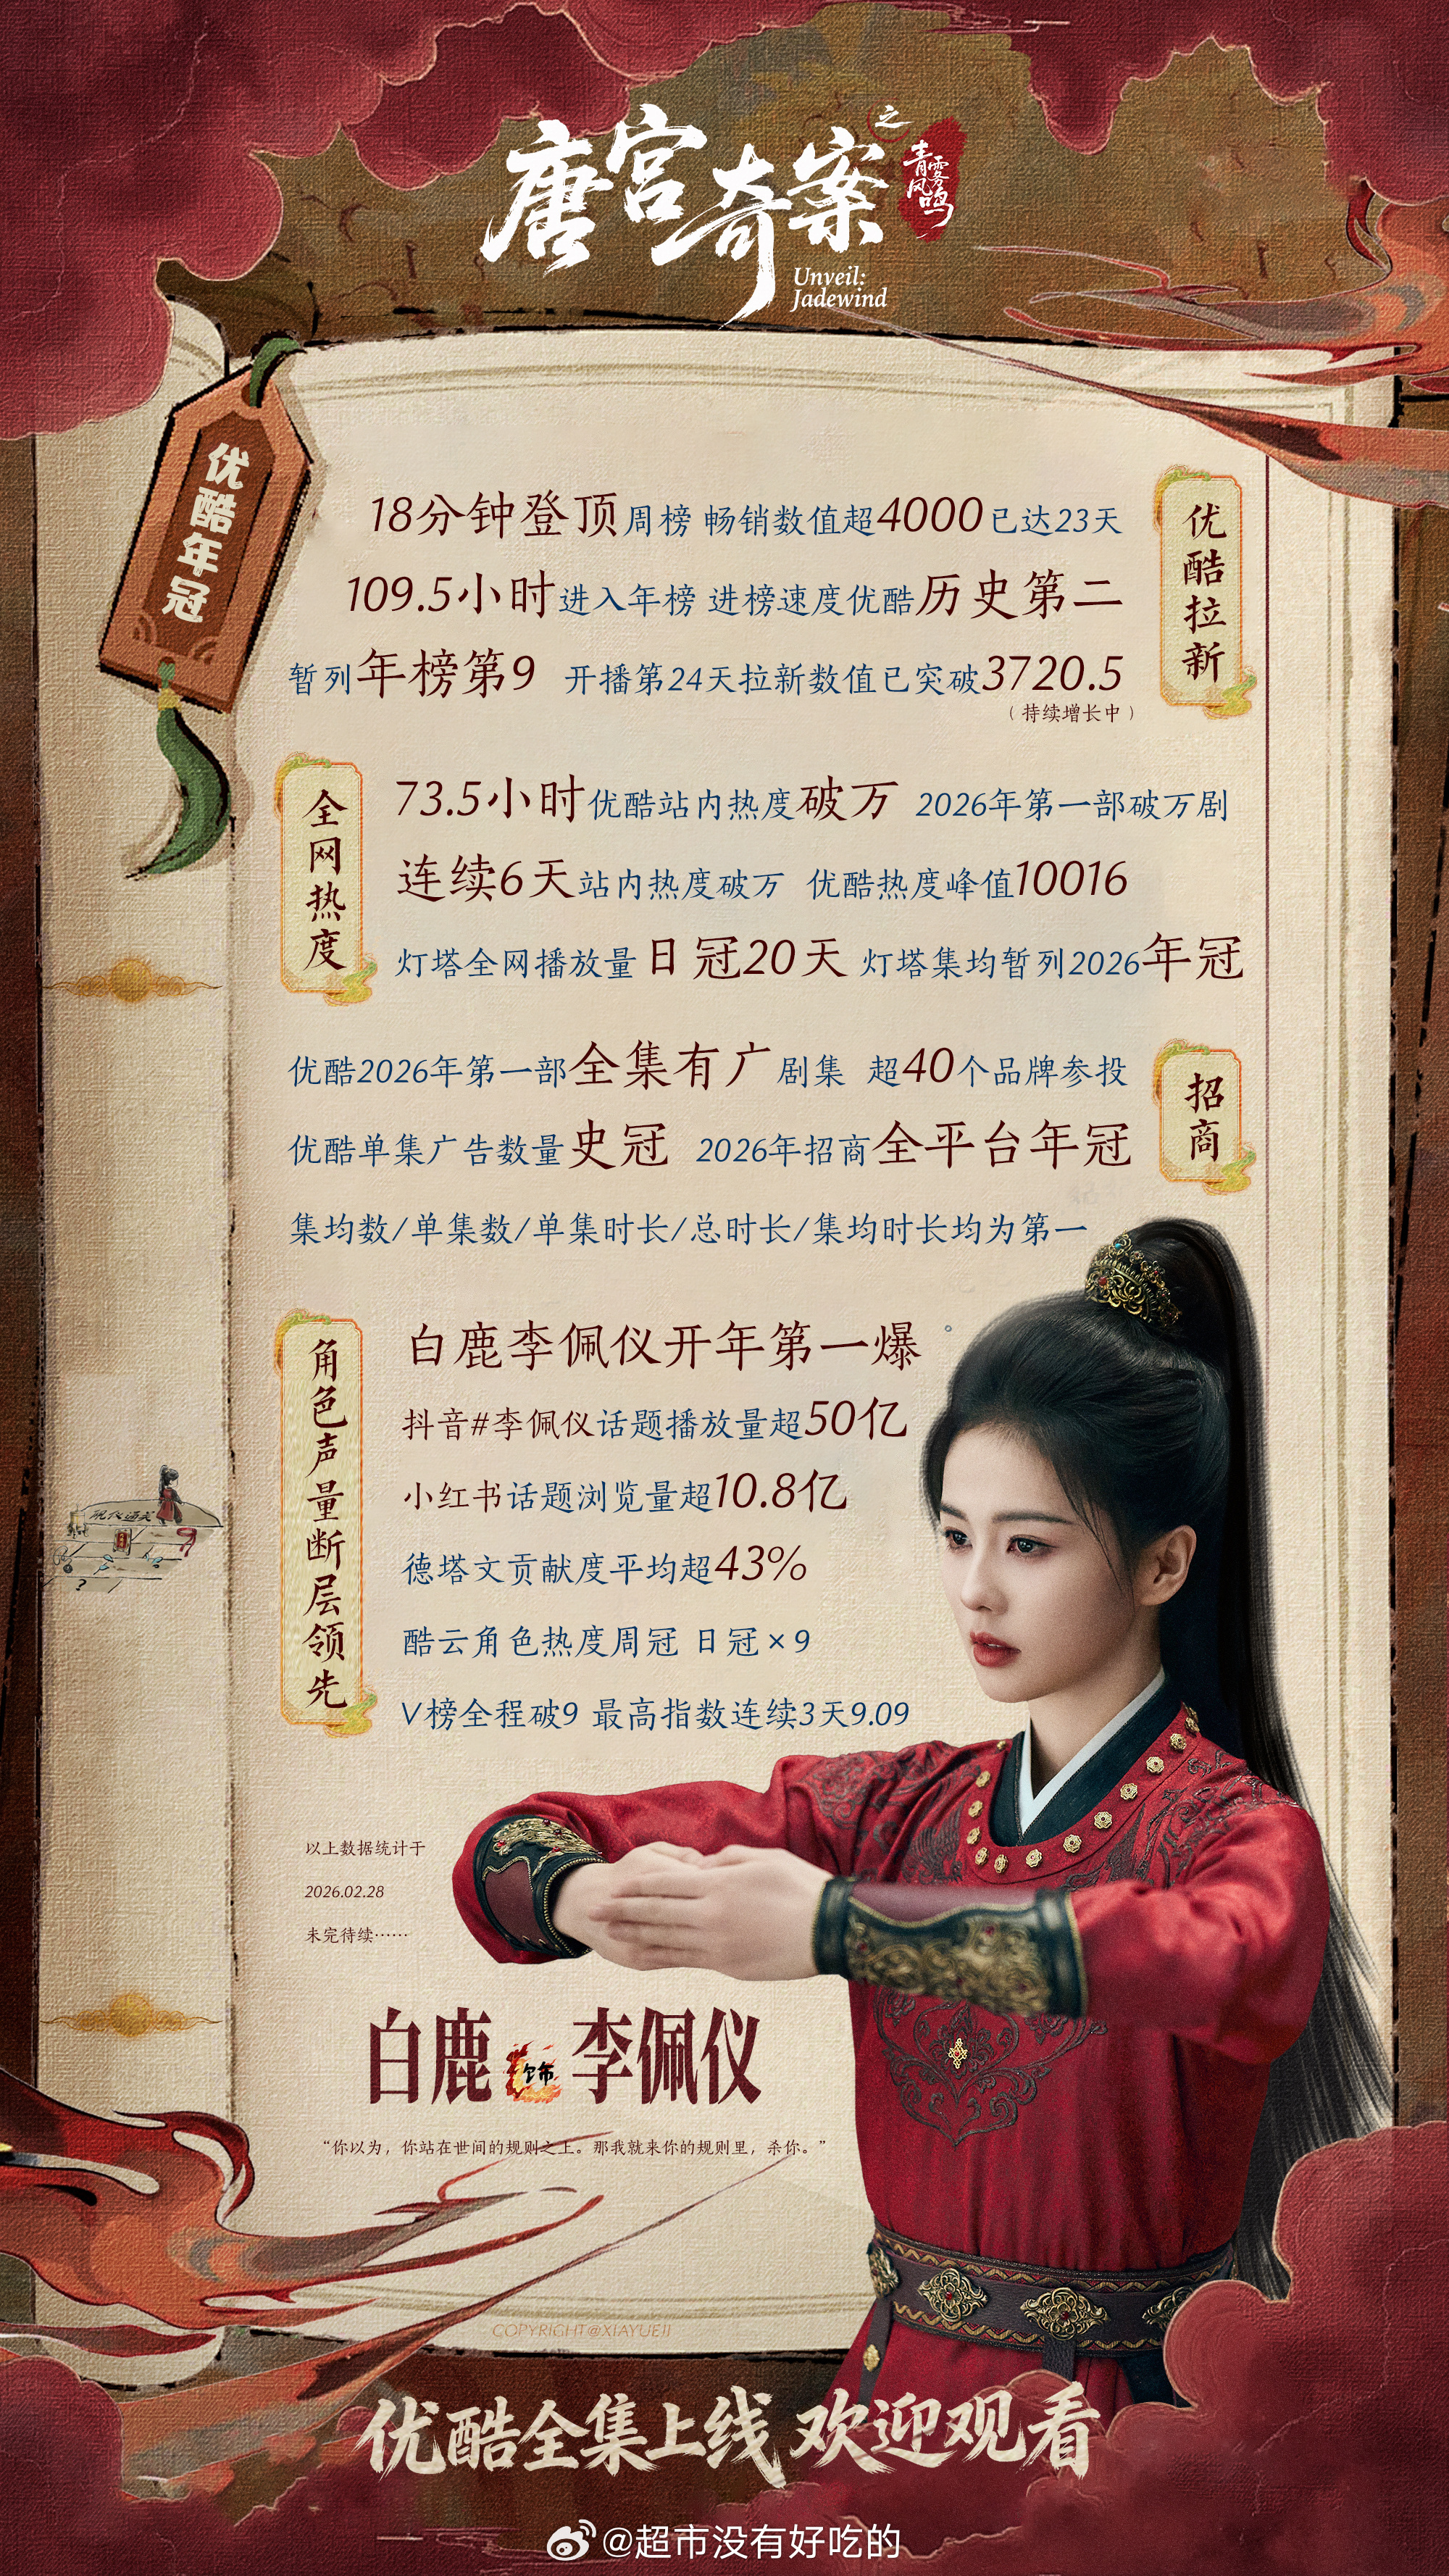 唐宫奇案
之
青雾风鸣
Unveil:
Jadewind
优酷年冠
优酷拉新
18分钟登顶周榜 畅销数值超4000已达23天
109.5小时进入年榜 进榜速度优酷历史第二
暂列年榜第9 开播第24天拉新数值已突破3720.5
（持续增长中）
全网热度
73.5小时优酷站内热度破万 2026年第一部破万剧
连续6天站内热度破万 优酷热度峰值10016
灯塔全网播放量日冠20天 灯塔集均暂列2026年冠
招商
优酷2026年第一部全集有广剧集 超40个品牌参投
优酷单集广告数量史冠 2026年招商全平台年冠
集均数/单集数/单集时长/总时长/集均时长均为第一
角色声量断层领先
白鹿李佩仪开年第一爆
抖音#李佩仪话题播放量超50亿
小红书话题浏览量超10.8亿
德塔文贡献度平均超43%
酷云角色热度周冠 日冠×9
V榜全程破9 最高指数连续3天9.09
以上数据统计于
2026.02.28
未完待续……
白鹿 饰 李佩仪
“你以为，你站在世间的规则之上。那我就来你的规则里，杀你。”
COPYRIGHT@XIAYUEJI
优酷全集上线 欢迎观看
@超市没有好吃的